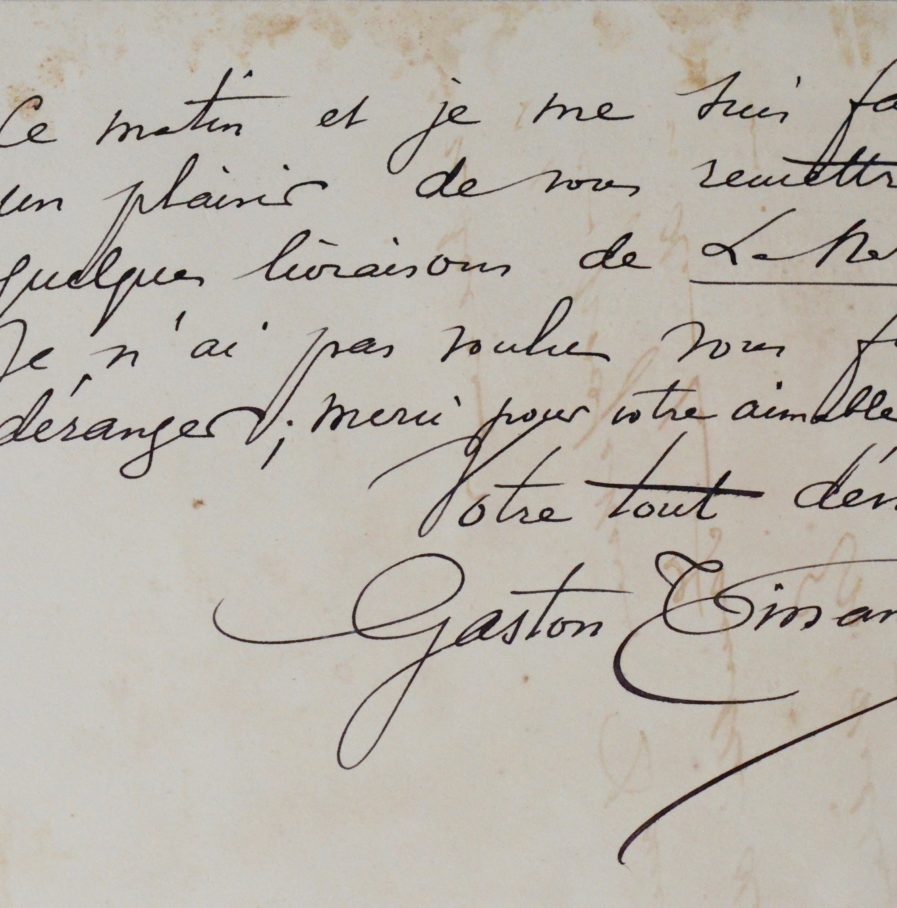 Ce matin et je me suis fa
un plaisir de vous remettr
quelques livraisons de La Na
Je n'ai pas voulu vous f
déranger ; merci pour votre aimable
Votre tout dév
Gaston Tissan